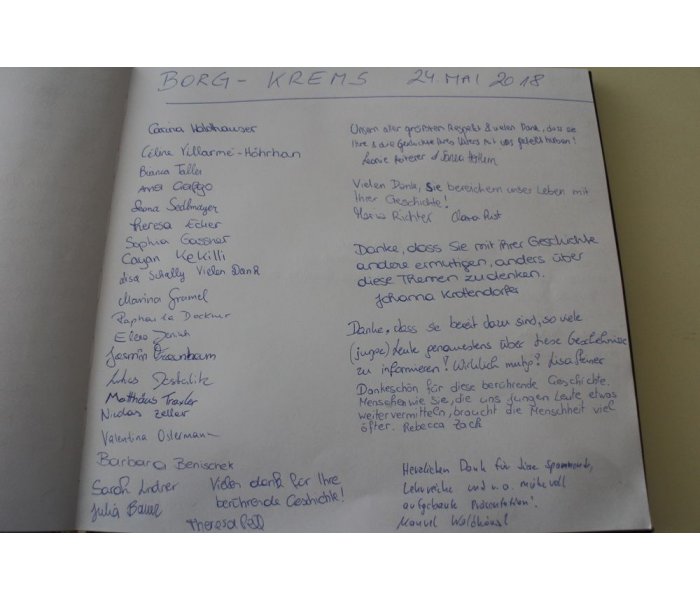 BORG - KREMS 24 MAI 2018
Carina
Céline Villarmé-Höhrhan
Bianca Taller
Anna
Leona Sedlmayer
Theresa Ecker
Sophia Gassner
Cayan Kekilli
Lisa Schally Vielen Dank
Marina Gramel
Raphaela Dockner
Elena
Jasmin
Lukas Dostalik
Matthäus Traxler
Nicolas Zeller
Valentina Ostermann
Barbara Benischek
Sarah Lindner
Julia Bauer
Vielen dank für Ihre
berührende Geschichte!
Theresa
Unseren aller größten Respekt & vielen Dank, dass sie
Ihre & die Geschichte Ihres Vaters mit uns geteilt haben!
Leonie
Vielen Dank, Sie bereichern unser Leben mit
Ihrer Geschichte!
Maria Richter Clara Rust
Danke, dass Sie mit ihrer Geschichte
andere ermutigen, anders über
diese Themen zu denken.
Johanna Krottendorfer
Danke, dass sie bereit dazu sind, so viele
(junge) Leute genauestens über diese Geschehnisse
zu informieren! Wirklich mutig! Lisa Steiner
Dankeschön für diese berührende Geschichte.
Menschen wie Sie, die uns jungen Leute etwas
weitervermitteln, braucht die Menschheit viel
öfter. Rebecca Zach
Herzlichen Dank für eine spannende,
Lehrreiche und u.a. mühevoll
aufgebaute Präsentation!
Manuel Waldhäusl